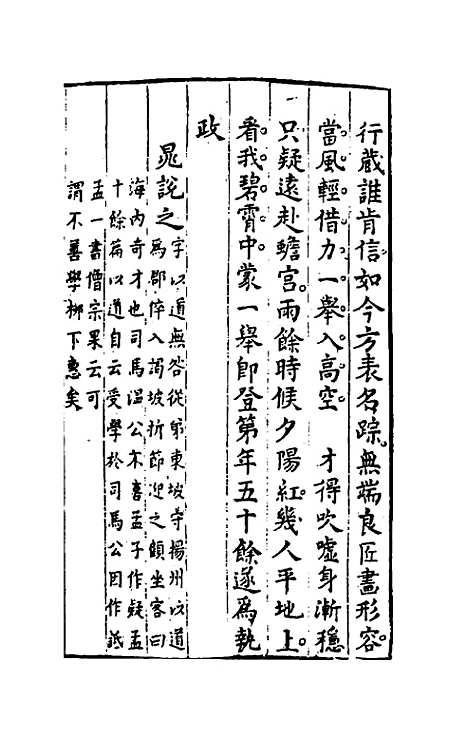 行藏誰肯信如今方表名踪無端良匠畫形容
當風輕借力一舉入高空　才得吹噓身漸穩
只疑遠赴蟾宮雨餘時候夕陽紅幾人平地上
看我碧霄中蒙一舉即登第年五十餘遂為執
政
晁說之字以道無咎從弟東坡守揚州以道
為郡倅入謁坡折節迎之顧坐客曰
海內奇才也司馬溫公不喜孟子作疑孟
十餘篇以道自云受學於司馬公因作詆
孟一書僧宗杲云可
謂不善學栁下惠矣